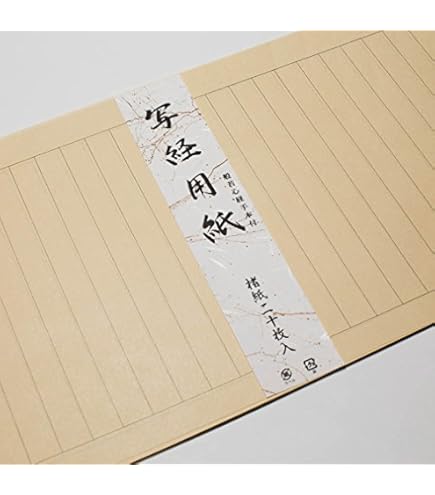 写経用紙
般若心経手本付
楮紙二十枚入